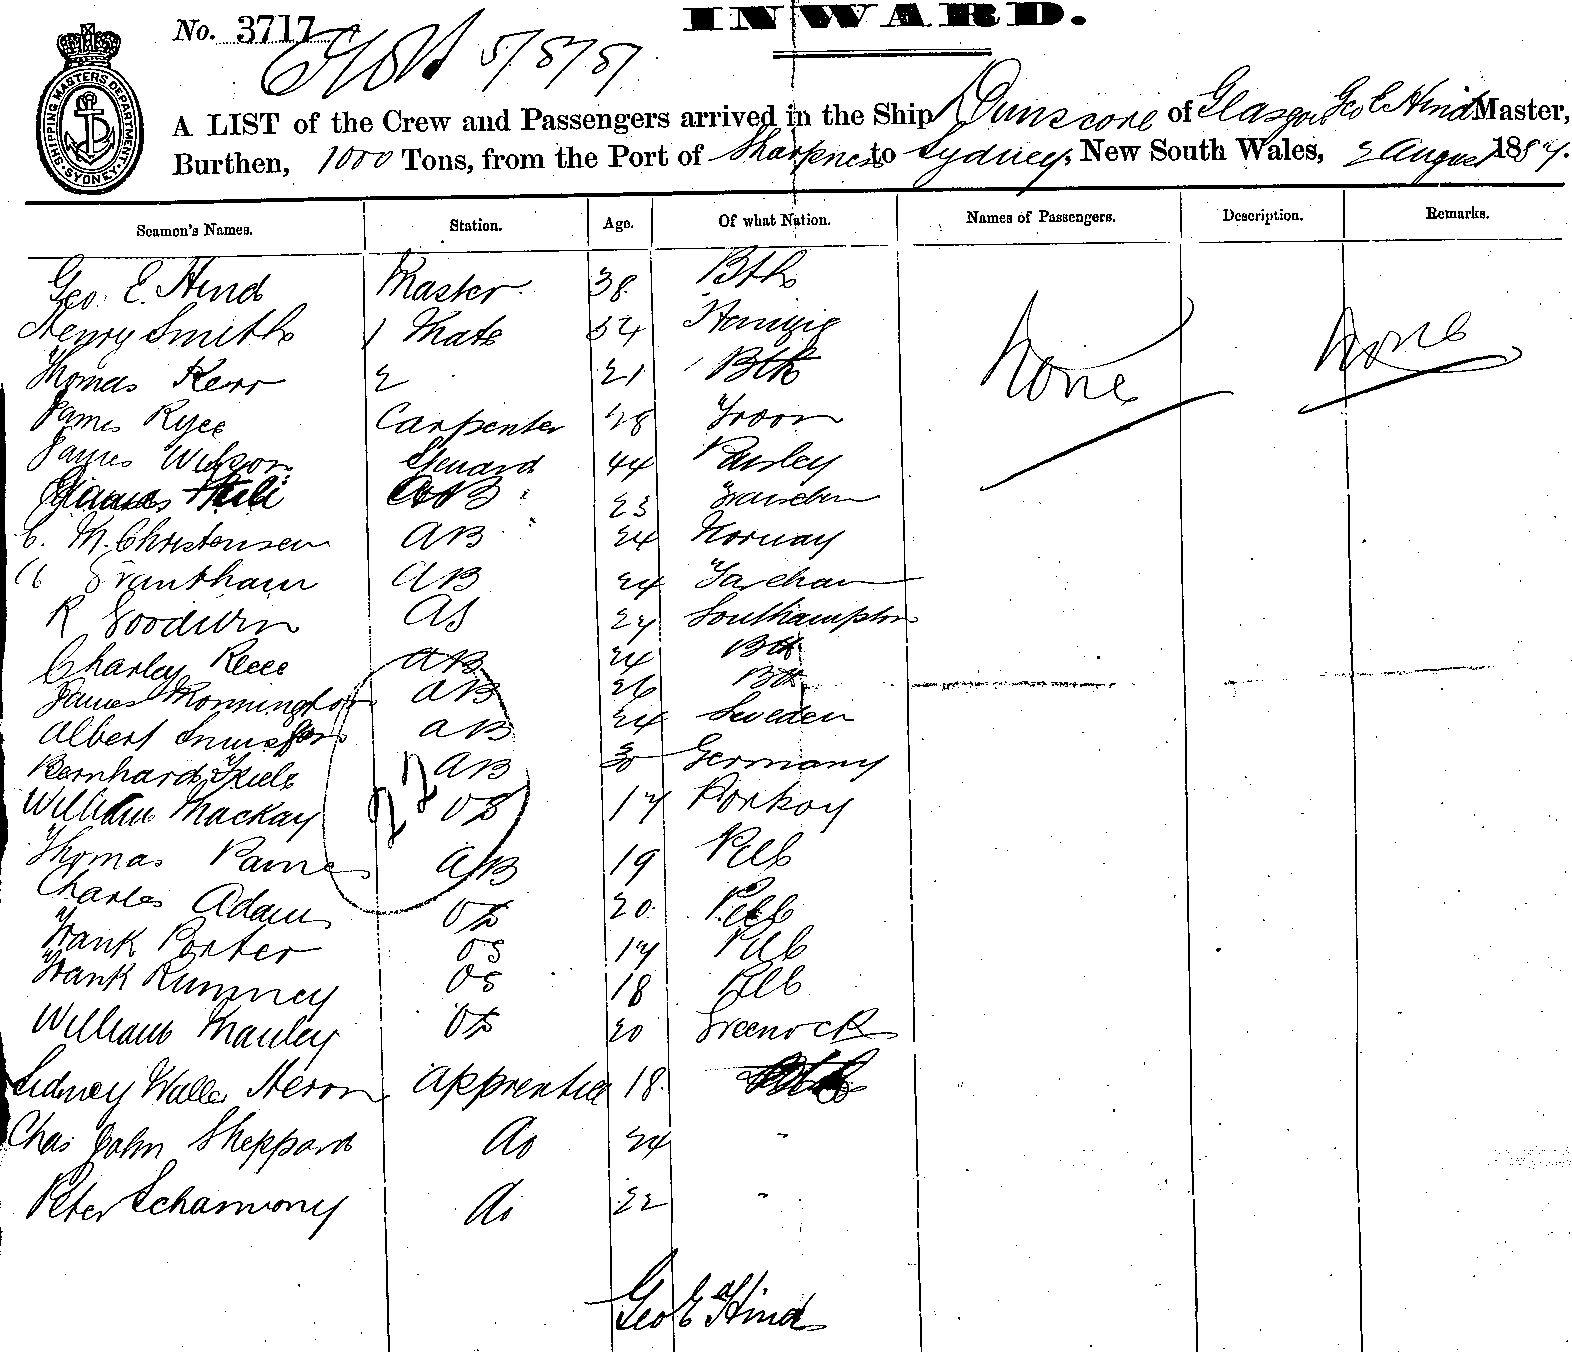 INWARD.
No. 3717
5/8/87
SHIPPING MASTERS DEPARTMENT SYDNEY
A LIST of the Crew and Passengers arrived in the Ship Dunscore of Glasgow Geo E Hind Master,
Burthen, 1000 Tons, from the Port of Sharpness to Sydney, New South Wales, 2 August 1887.
Seamen's Names. Station. Age. Of what Nation. Names of Passengers. Description. Remarks.
Geo. E. Hind Master 38 Bth
Henry Smith 1 Mate 34
Thomas Kerr 2 21 Bth
None None
James Ryce Carpenter 28 Troon
James Wilson Steward 44 Paisley
James AB 23
C. M. Christensen AB 24 Norway
Grantham AB 24 Fareham
R Goodwin AS 24 Southampton
Charley Reece AB 24 Bth
James Monnington AB 26 Bth
Albert AB 24 Sweden
Bernhard Thiele AB 30 Germany
22
William Mackay OS 17
Thomas Paine AB 19
Charles Adam OS 20
Frank Porter OS 17
Frank Rumney OS 18
William Manley OS 20 Greenock
Sidney Waller Heron Apprentice 18 Bth
Chas John Sheppard Do 24 "
Peter Schamvony Do 22 "
Geo E Hind